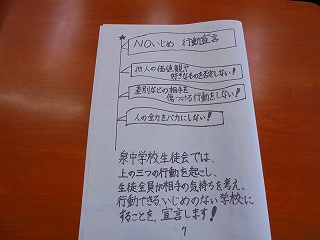 NOいじめ 行動宣言
他人の価値観や
好きなものを否定しない!
差別などの相手を
傷つける行動をしない!
人の全力をバカにしない!
泉中学校生徒会では、
上の三つの行動を起こし、
生徒全員が相手の気持ちを考え、
行動できる、いじめのない学校に
することを、宣言します!
7